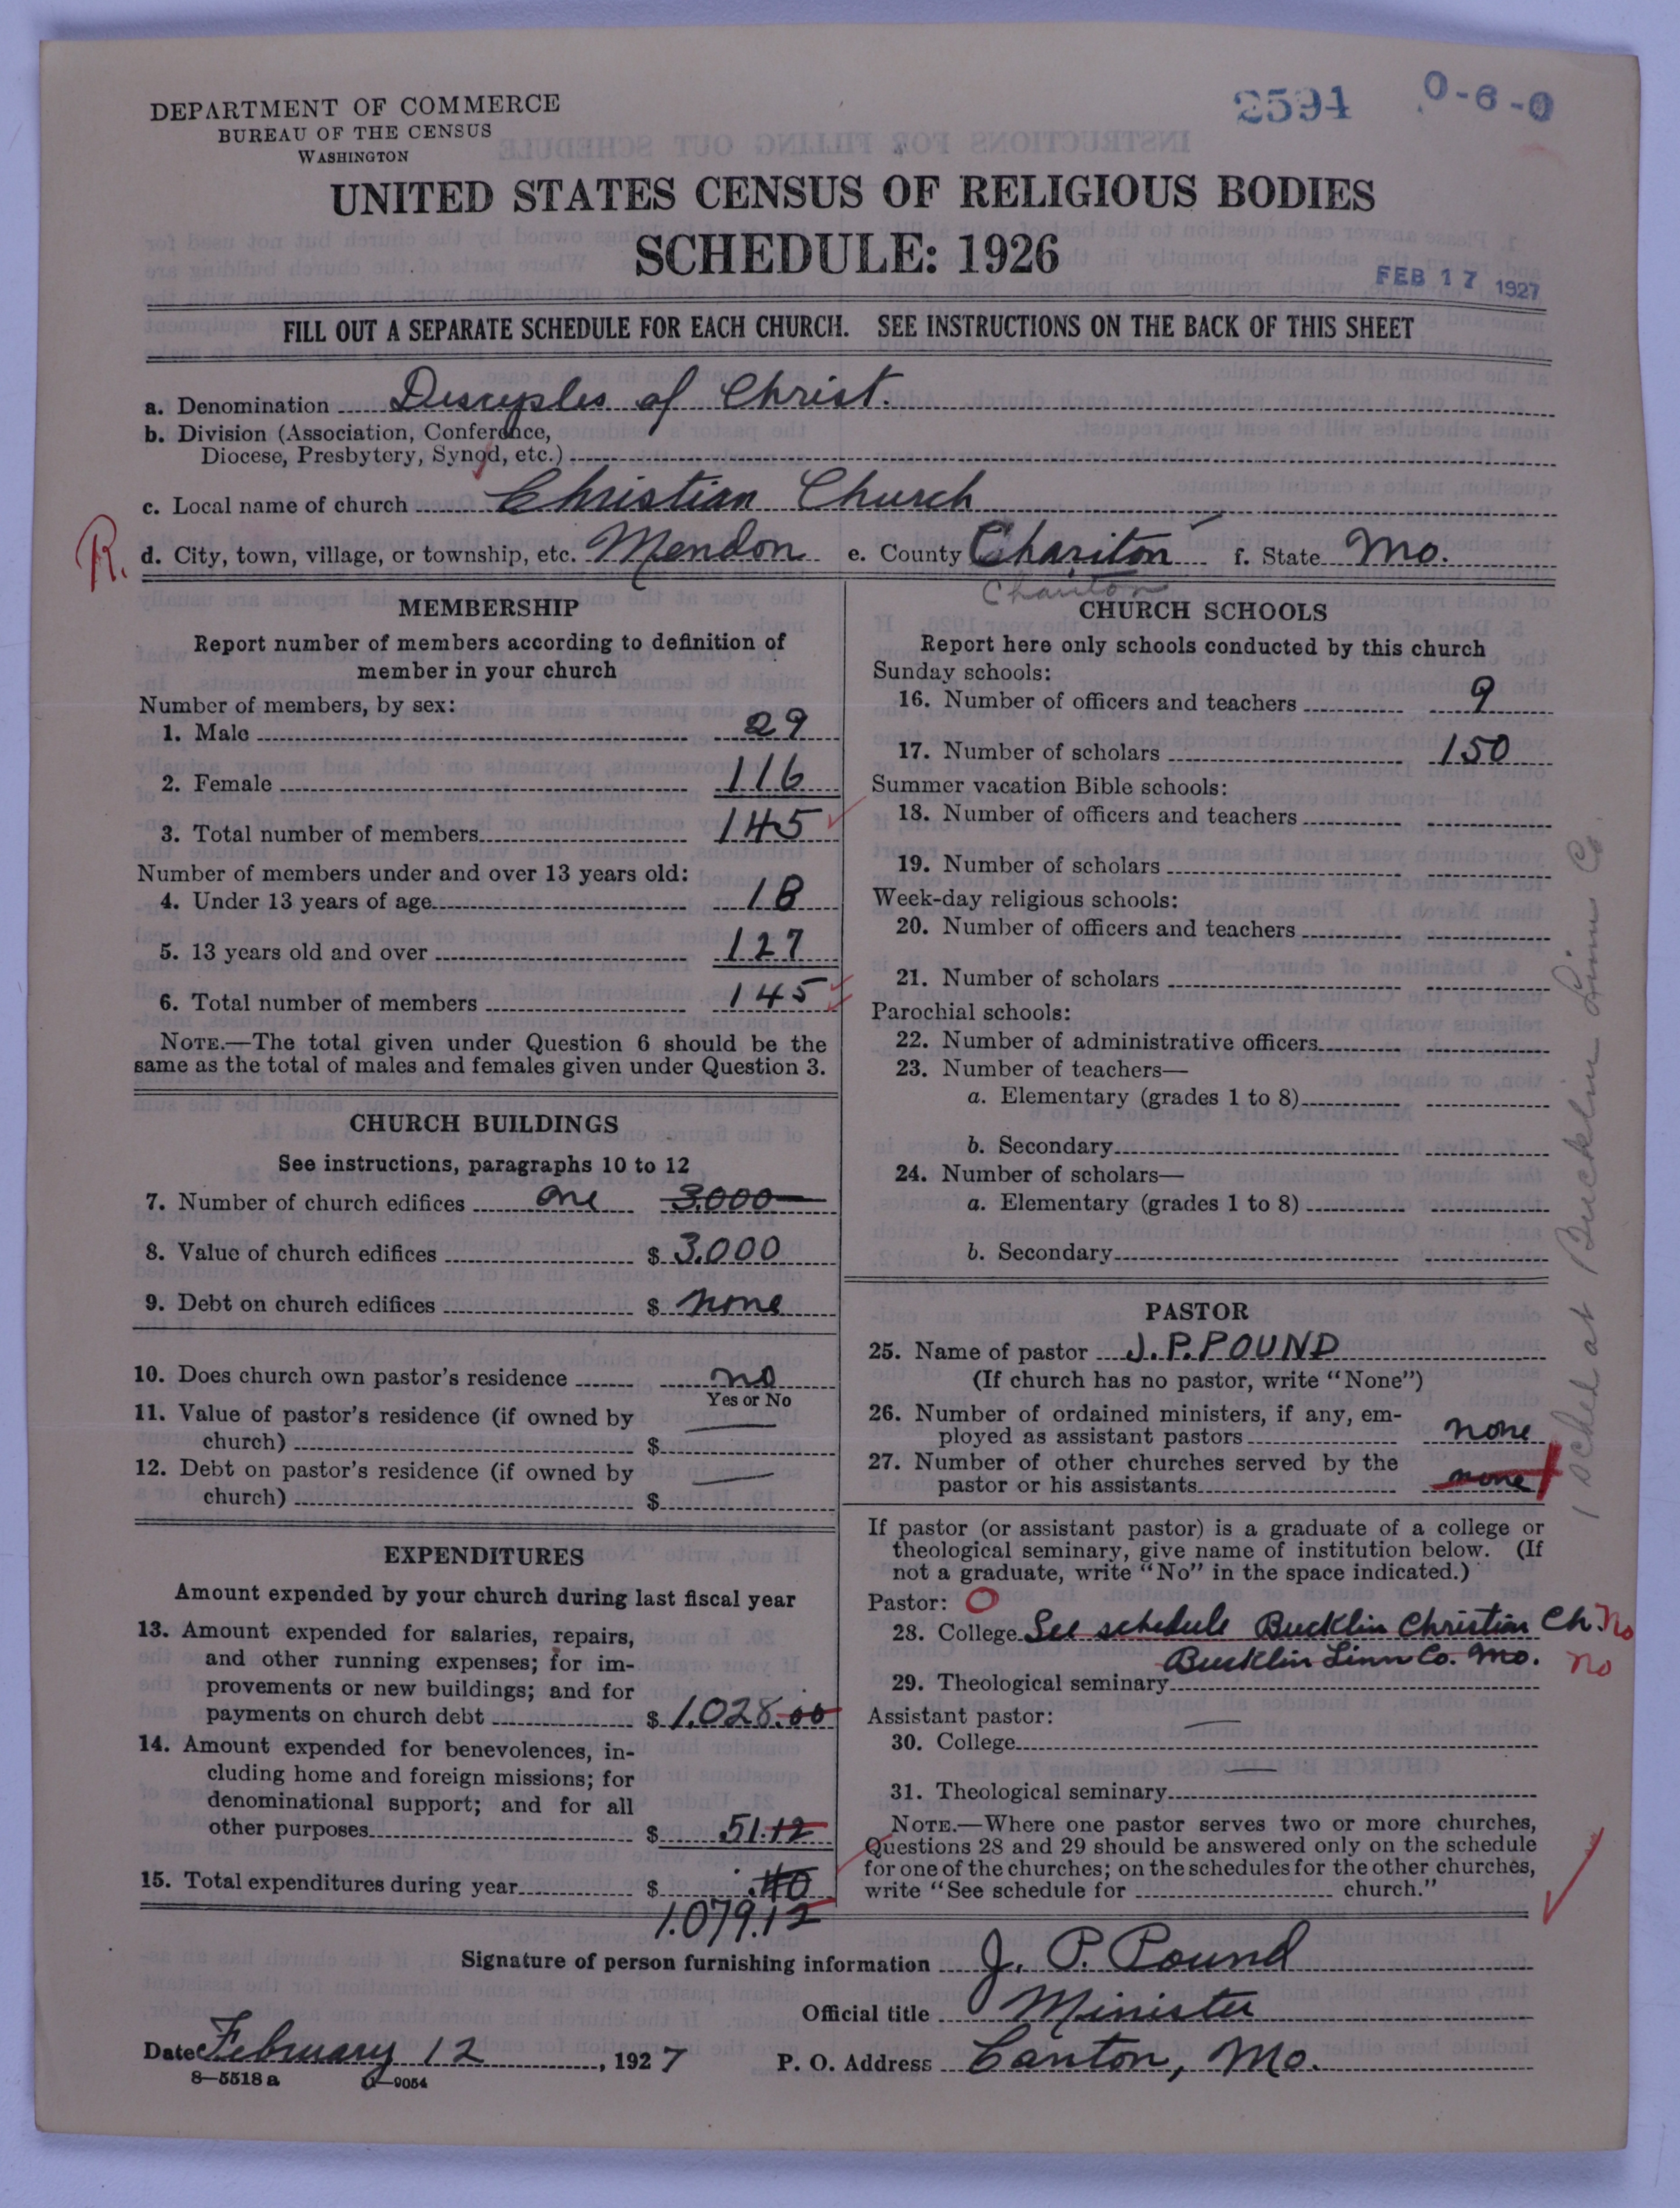 DEPARTMENT OF COMMERCE
BUREAU OF THE CENSUS
WASHINGTON
2594 0-6-0
UNITED STATES CENSUS OF RELIGIOUS BODIES
SCHEDULE: 1926
FEB 17 1927
FILL OUT A SEPARATE SCHEDULE FOR EACH CHURCH. SEE INSTRUCTIONS ON THE BACK OF THIS SHEET
a. Denomination Disciples of Christ.
b. Division (Association, Conference,
Diocese, Presbytery, Synod, etc.)
c. Local name of church Christian Church
R. d. City, town, village, or township, etc. Mendon e. County Chariton f. State Mo.
Chariton
MEMBERSHIP
Report number of members according to definition of
member in your church
Number of members, by sex:
1. Male 29
2. Female 116
3. Total number of members 145
Number of members under and over 13 years old:
4. Under 13 years of age 18
5. 13 years old and over 127
6. Total number of members 145
NOTE.—The total given under Question 6 should be the
same as the total of males and females given under Question 3.
CHURCH BUILDINGS
See instructions, paragraphs 10 to 12
7. Number of church edifices one 3.000
8. Value of church edifices $ 3.000
9. Debt on church edifices $ none
10. Does church own pastor's residence no
Yes or No
11. Value of pastor's residence (if owned by
church) $ —
12. Debt on pastor's residence (if owned by
church) $ —
EXPENDITURES
Amount expended by your church during last fiscal year
13. Amount expended for salaries, repairs,
and other running expenses; for im-
provements or new buildings; and for
payments on church debt $ 1.028.00
14. Amount expended for benevolences, in-
cluding home and foreign missions; for
denominational support; and for all
other purposes $ 51.12
15. Total expenditures during year $
1.079.12
CHURCH SCHOOLS
Report here only schools conducted by this church
Sunday schools:
16. Number of officers and teachers 9
17. Number of scholars 150
Summer vacation Bible schools:
18. Number of officers and teachers
19. Number of scholars
Week-day religious schools:
20. Number of officers and teachers
21. Number of scholars
Parochial schools:
22. Number of administrative officers
23. Number of teachers—
a. Elementary (grades 1 to 8)
b. Secondary
24. Number of scholars—
a. Elementary (grades 1 to 8)
b. Secondary
PASTOR
25. Name of pastor J. P. POUND
(If church has no pastor, write "None")
26. Number of ordained ministers, if any, em-
ployed as assistant pastors none
27. Number of other churches served by the
pastor or his assistants none 1
If pastor (or assistant pastor) is a graduate of a college or
theological seminary, give name of institution below. (If
not a graduate, write "No" in the space indicated.)
Pastor: O
28. College See schedule Bucklin Christian Ch. No
Bucklin Linn Co. Mo. no
29. Theological seminary
Assistant pastor: —
30. College
—
31. Theological seminary
NOTE.—Where one pastor serves two or more churches,
Questions 28 and 29 should be answered only on the schedule
for one of the churches; on the schedules for the other churches,
write "See schedule for church."
1 sched at Bucklin Linn Co.
Signature of person furnishing information J. P. Pound
Official title Minister
Date February 12, 1927 P. O. Address Canton, Mo.
8—5518 a 11—9054